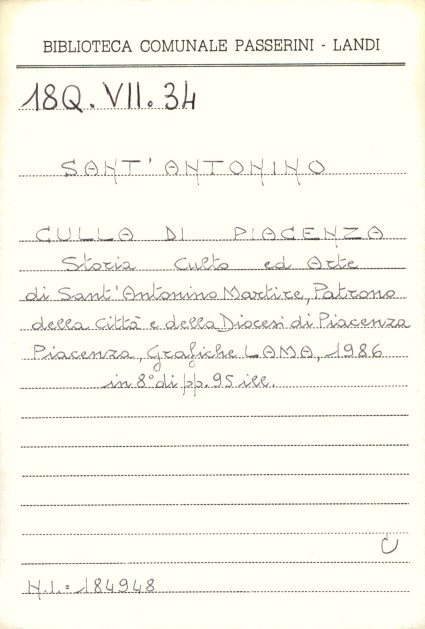 BIBLIOTECA COMUNALE PASSERINI - LANDI
18Q. VII. 34
SANT'ANTONINO
CULLA DI PIACENZA
Storia Culto ed Arte
di Sant'Antonino Martire, Patrono
della Città e della Diocesi di Piacenza
Piacenza, Grafiche LAMA, 1986
in 8° di pp. 95 ill.
C
N.I.= 184948